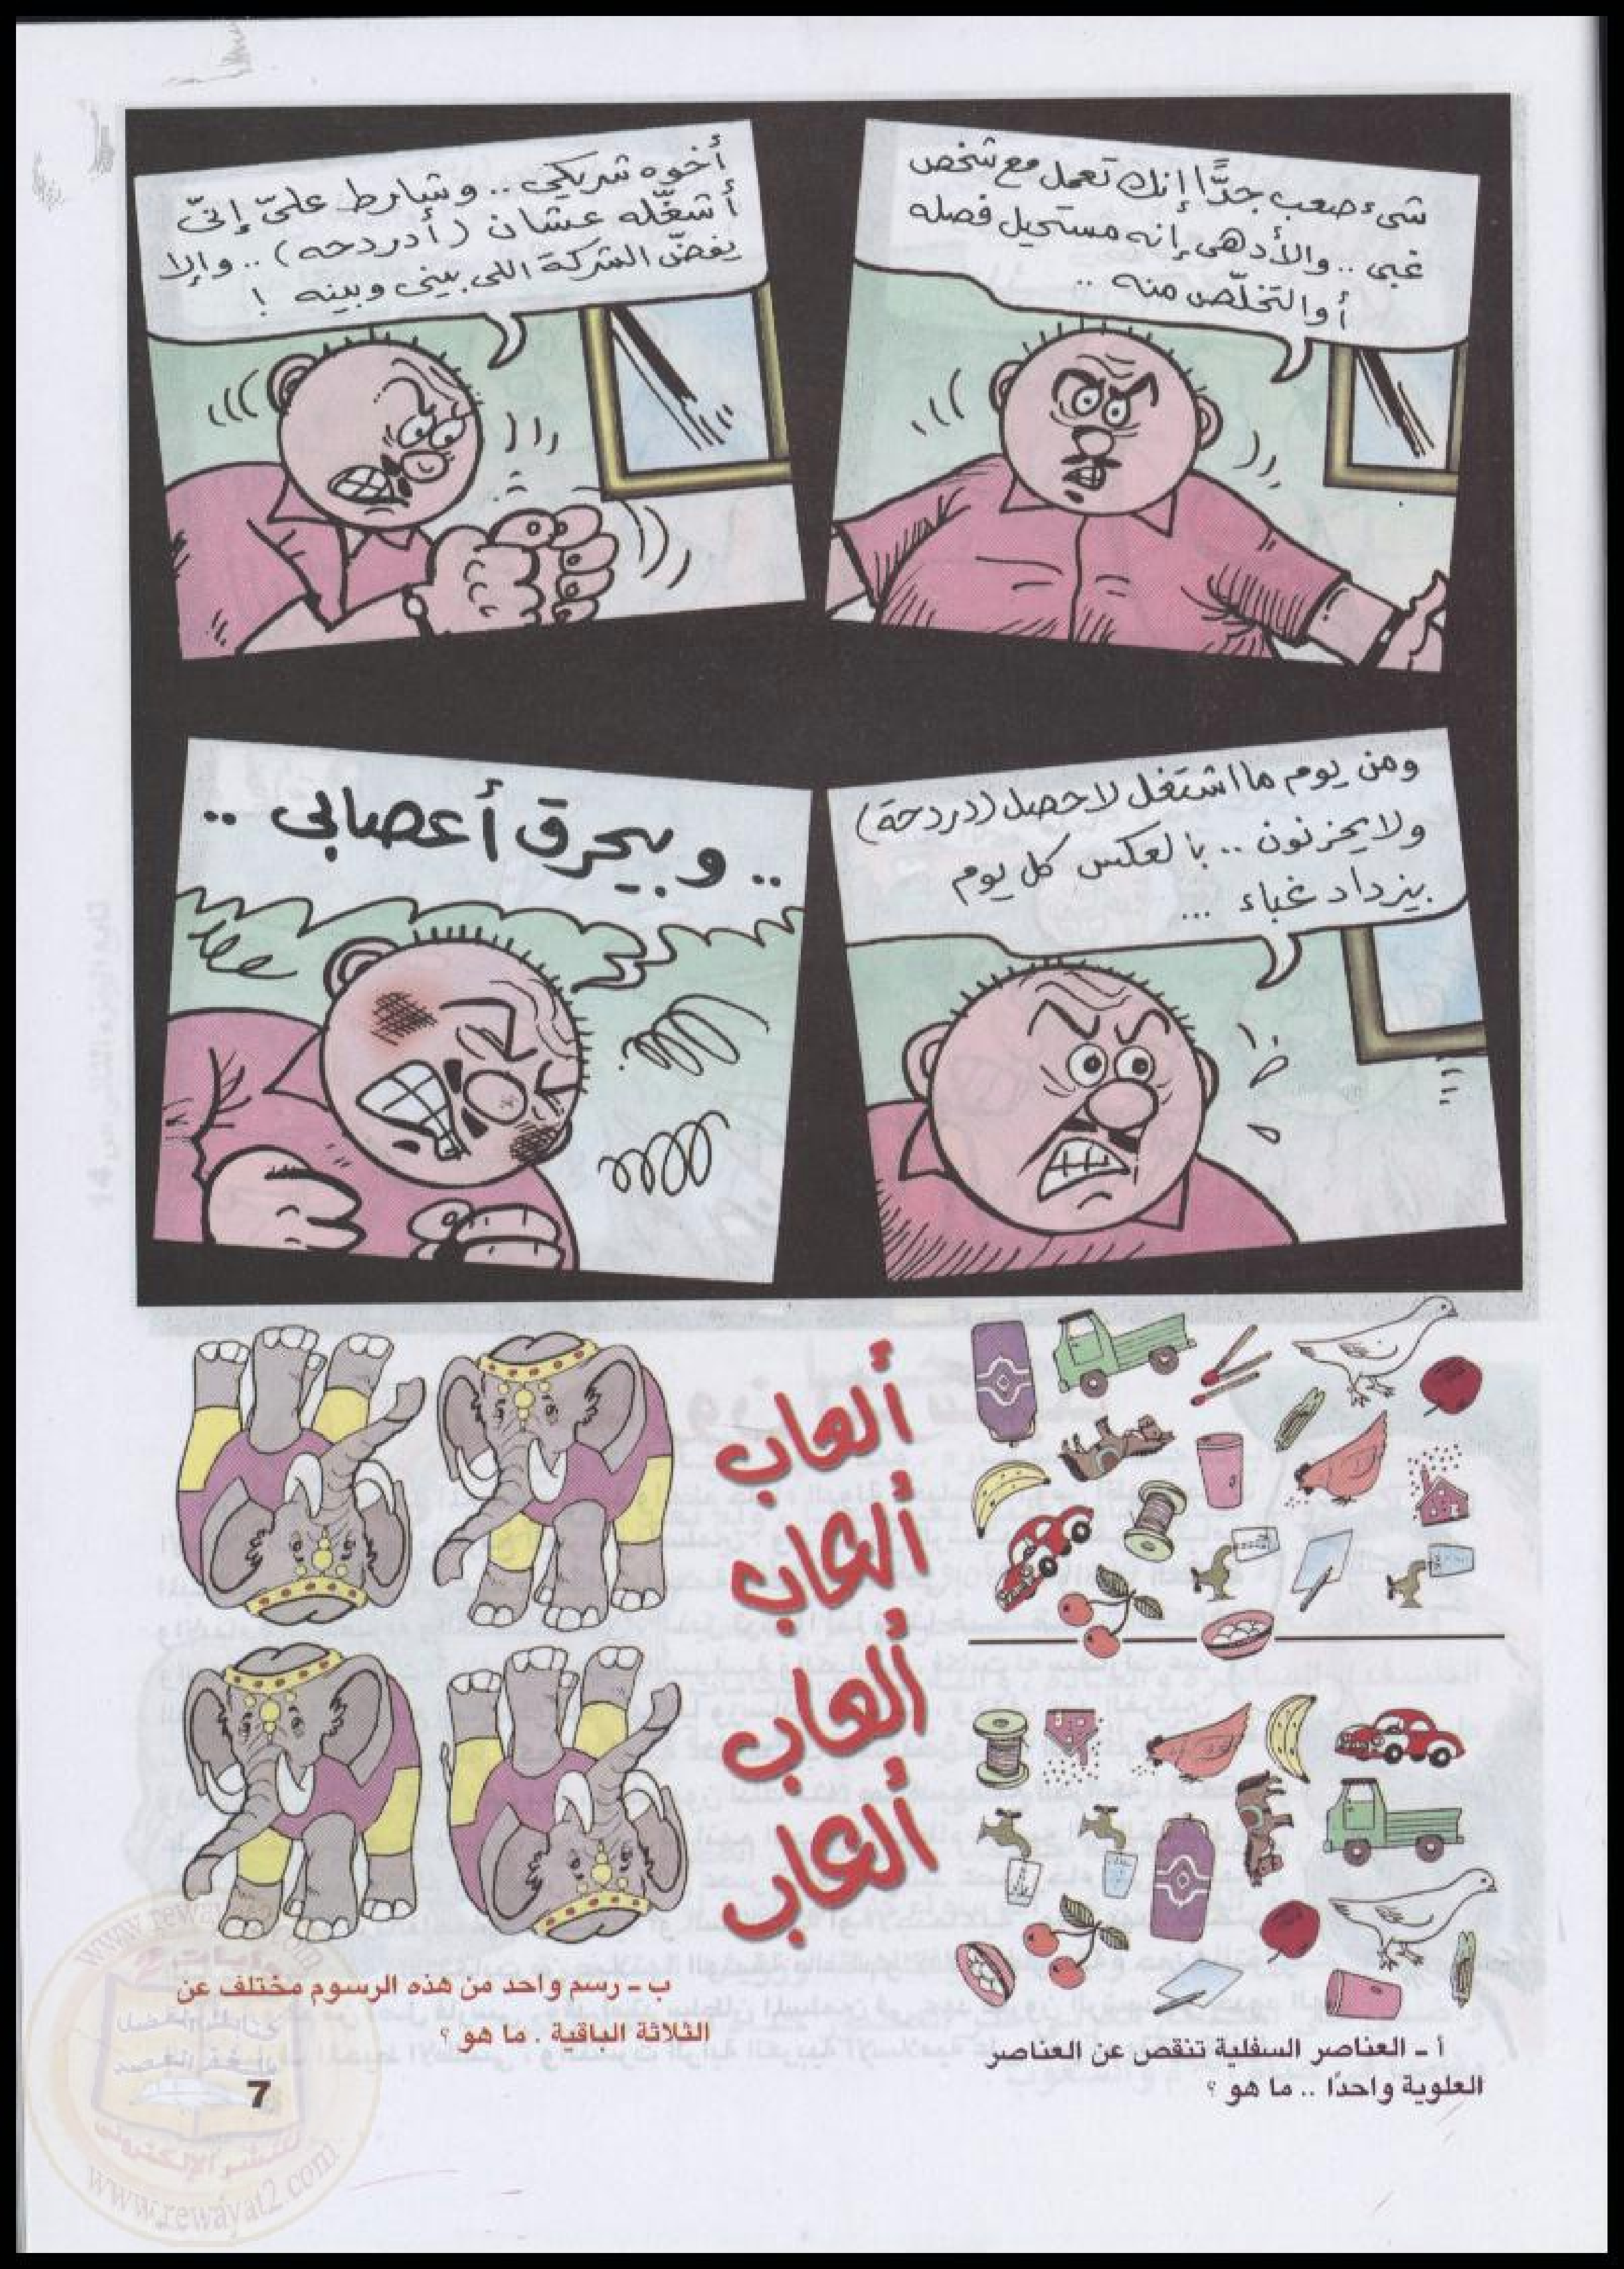 شىء صعب جدًّا إنك تعمل مع شخص
غبى .. والأدهى إنه مستحيل فصله
أو التخلّص منه ..
أخوه شريكى .. وشارط علىّ إنّى
أشغّله عشان (أدردحه) .. وإلا
يفضّ الشركة اللى بينى وبينه !
ومن يوم ما اشتغل لا حصل (دردحة)
ولا يحزنون .. بالعكس كل يوم
بيزداد غباء ...
.. وبيحرق أعصابى ..
ألعاب
ألعاب
ألعاب
ألعاب
أ - العناصر السفلية تنقص عن العناصر
العلوية واحدًا .. ما هو ؟
ب - رسم واحد من هذه الرسوم مختلف عن
الثلاثة الباقية . ما هو ؟
7
www.rewayat2.com